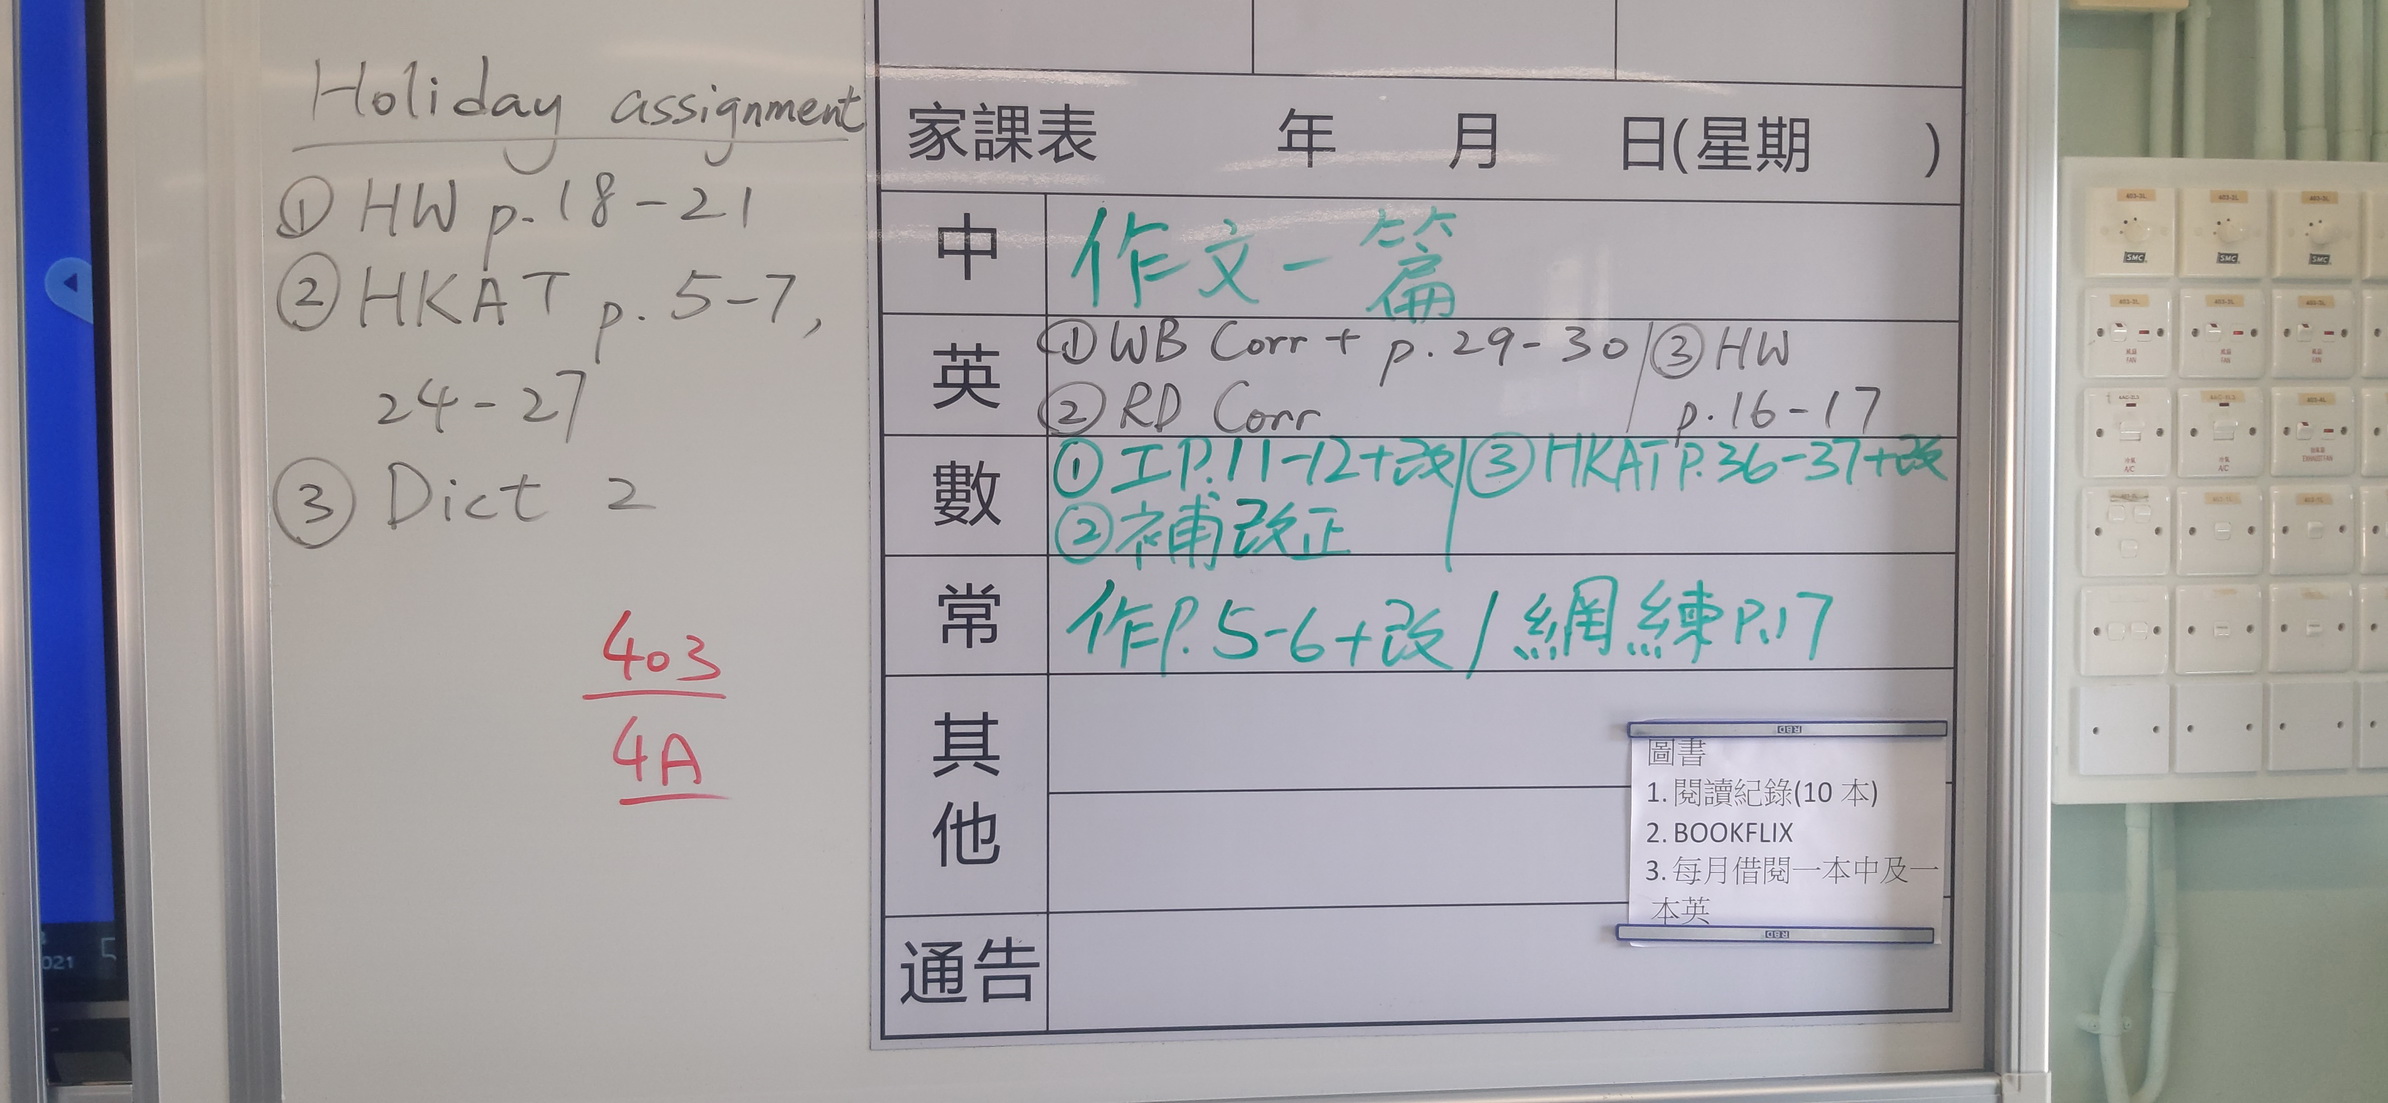 Holiday assignment
① HW p. 18-21
② HKAT p. 5-7,
24-27
③ Dict 2
403
4A
家課表 年 月 日(星期 )
中 作文一篇
英 ① WB Corr + p. 29-30 / ③ HW
② RD Corr p. 16-17
數 ① 工P.11-12+改 / ③ HKAT P.36-37+改
② 補改正
常 作P.5-6+改 / 網練P.17
其他
圖書
1. 閱讀紀錄(10 本)
2. BOOKFLIX
3. 每月借閱一本中及一
本英
通告
021
SMC
SMC
SMC
FAN
FAN
FAN
A/C
A/C